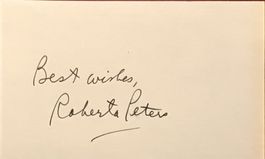 Best wishes,
Roberta Peters